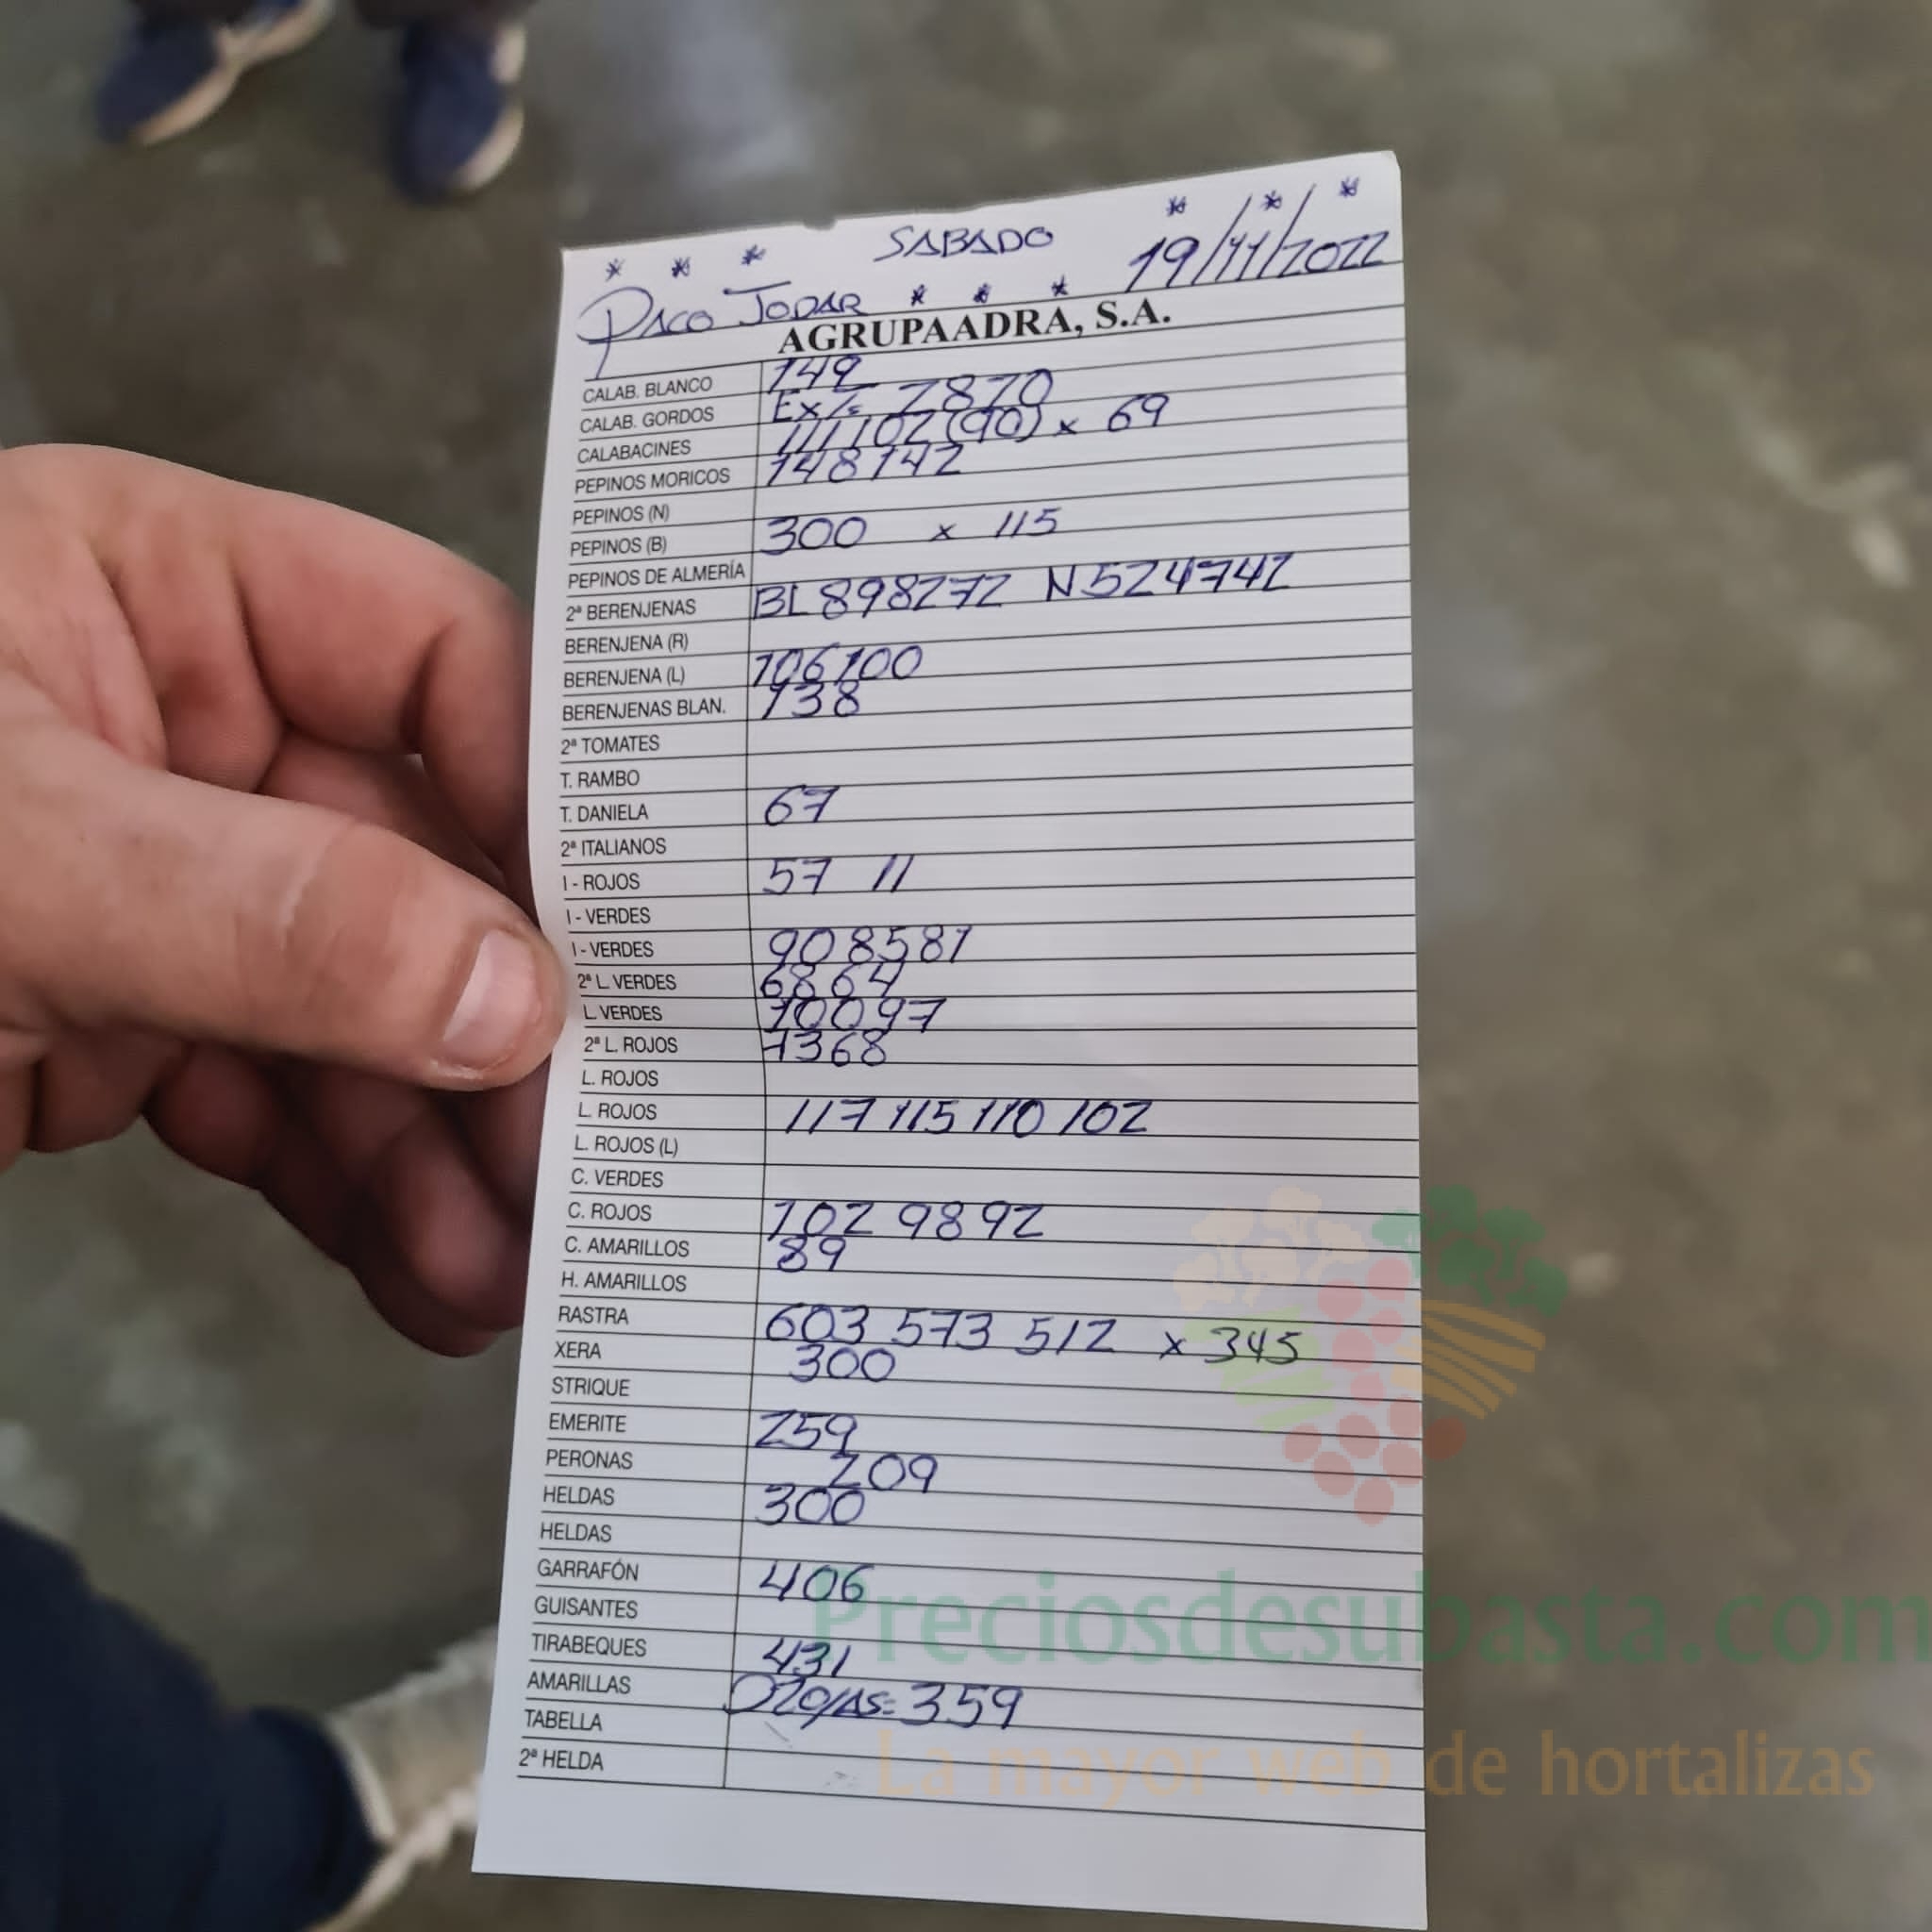 * * * SABADO * * *
PACO JODAR * * * 19/11/2022
AGRUPAADRA, S.A.
CALAB. BLANCO 149
CALAB. GORDOS Ex/s 7870
CALABACINES 111 102 (90) x 69
PEPINOS MORICOS 148 142
PEPINOS (N)
PEPINOS (B) 300 x 115
PEPINOS DE ALMERÍA
2ª BERENJENAS BL 898272 N 524742
BERENJENA (R)
BERENJENA (L) 106 100
BERENJENAS BLAN. 138
2ª TOMATES
T. RAMBO
T. DANIELA 67
2ª ITALIANOS
I - ROJOS 57 11
I - VERDES
I - VERDES 908581
2ª L. VERDES 6864
L. VERDES 10097
2ª L. ROJOS 7368
L. ROJOS
L. ROJOS 117 115 110 102
L. ROJOS (L)
C. VERDES
C. ROJOS 102 9892
C. AMARILLOS 89
H. AMARILLOS
RASTRA 603 573 512 x 345
XERA 300
STRIQUE
EMERITE 259
PERONAS 209
HELDAS 300
HELDAS
GARRAFÓN 406
GUISANTES
TIRABEQUES 431
AMARILLAS 359
TABELLA
2ª HELDA
Preciosdesubasta.com
La mayor web de hortalizas